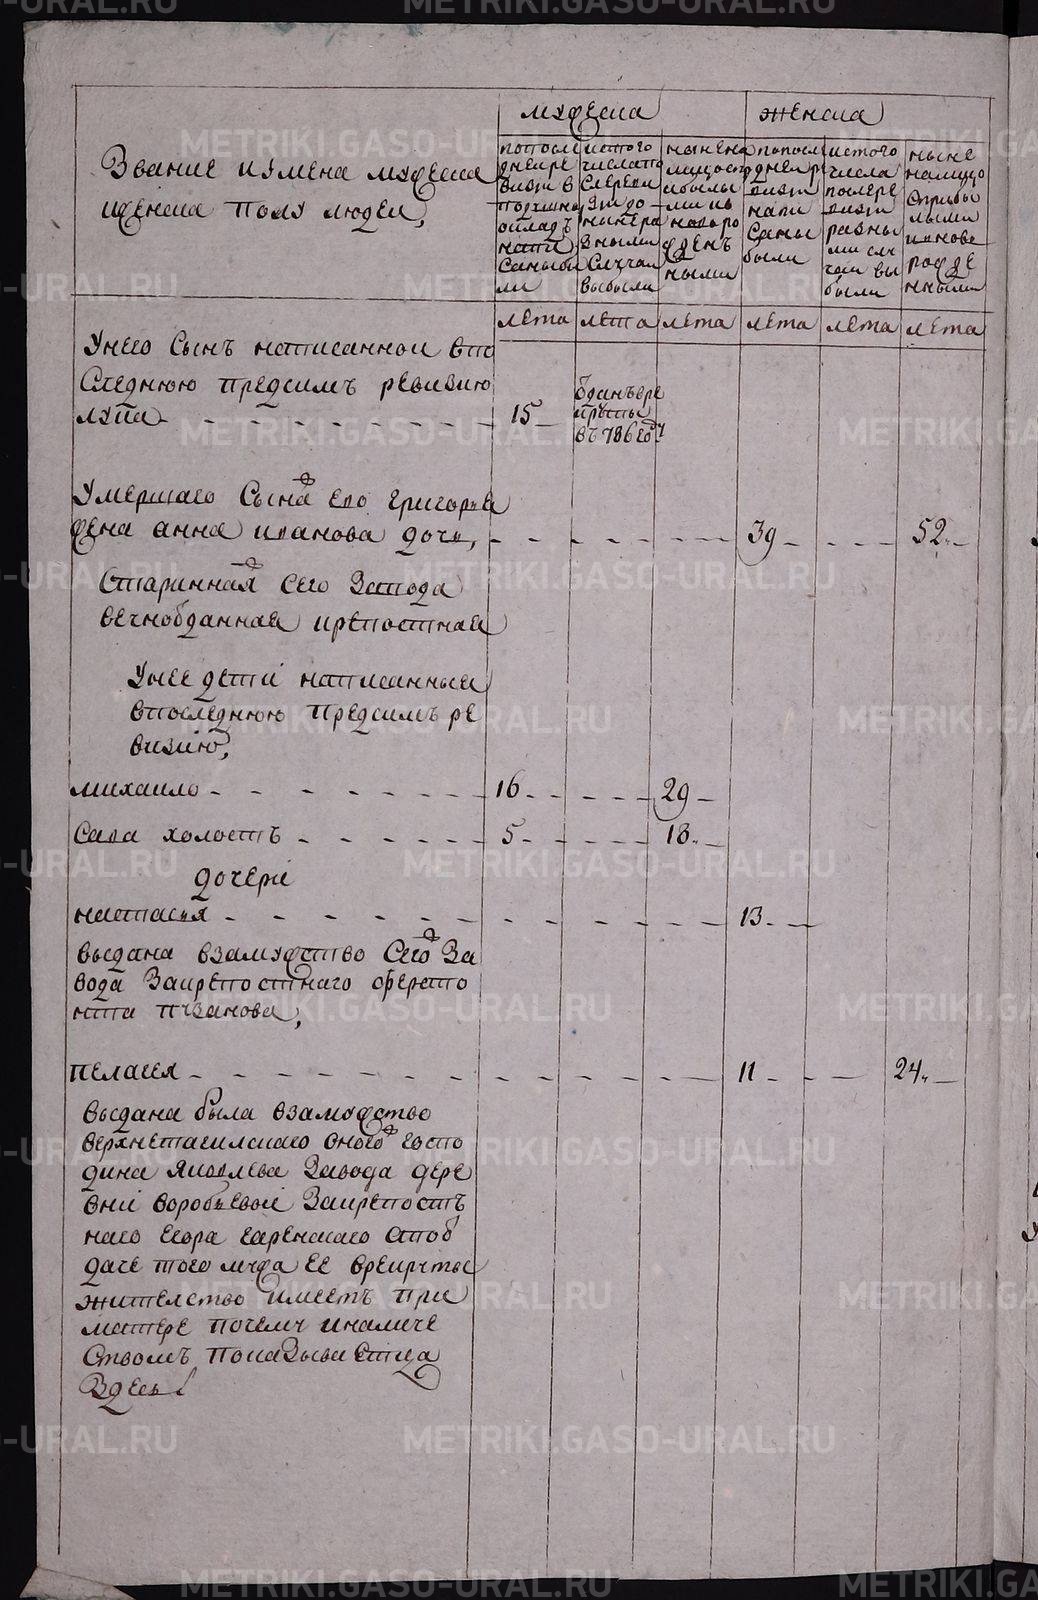 мужеска
женска
Звание и имена мужеска
и женска полу людей,
по последней ревизии в подушной оклад написаны были
ис того числа после ревизии до ныне разными случаи выбыли
ныне на лицо с прибылыми и новорожденными
по последней ревизии написаны были
ис того числа после ревизии разными случаи выбыли
ныне на лицо с прибылыми и новорожденными
лета лета лета лета лета лета
У него Сынъ написанной в по
следнюю пред симъ ревизию
лупа 15 отданъ в рекруты въ 786 году
Умершаго Сына его григорья
жена анна иванова дочь, 39 52
Старинная Сего Завода
вечноотданная крепостная
У нее дети написанныи
в последнюю предсимъ ре
визию,
михаило 16 29
Сава холостъ 5 18
дочери
настасья 13
выдана в замужство Сего За
вода Закрепостнаго ферапо
нта пузанова,
пелагея 11 24
выдана была в замужство
верхнетагилскаго оного госпо
дина Яковлева Завода дере
вни воробьевой Закрепостъ
наго Егора гаренскаго а по от
даче того мужа ее в рекруты
жителство имеетъ при
матере почему и наличе
ством показывается
Здесь
METRIKI.GASO-URAL.RU